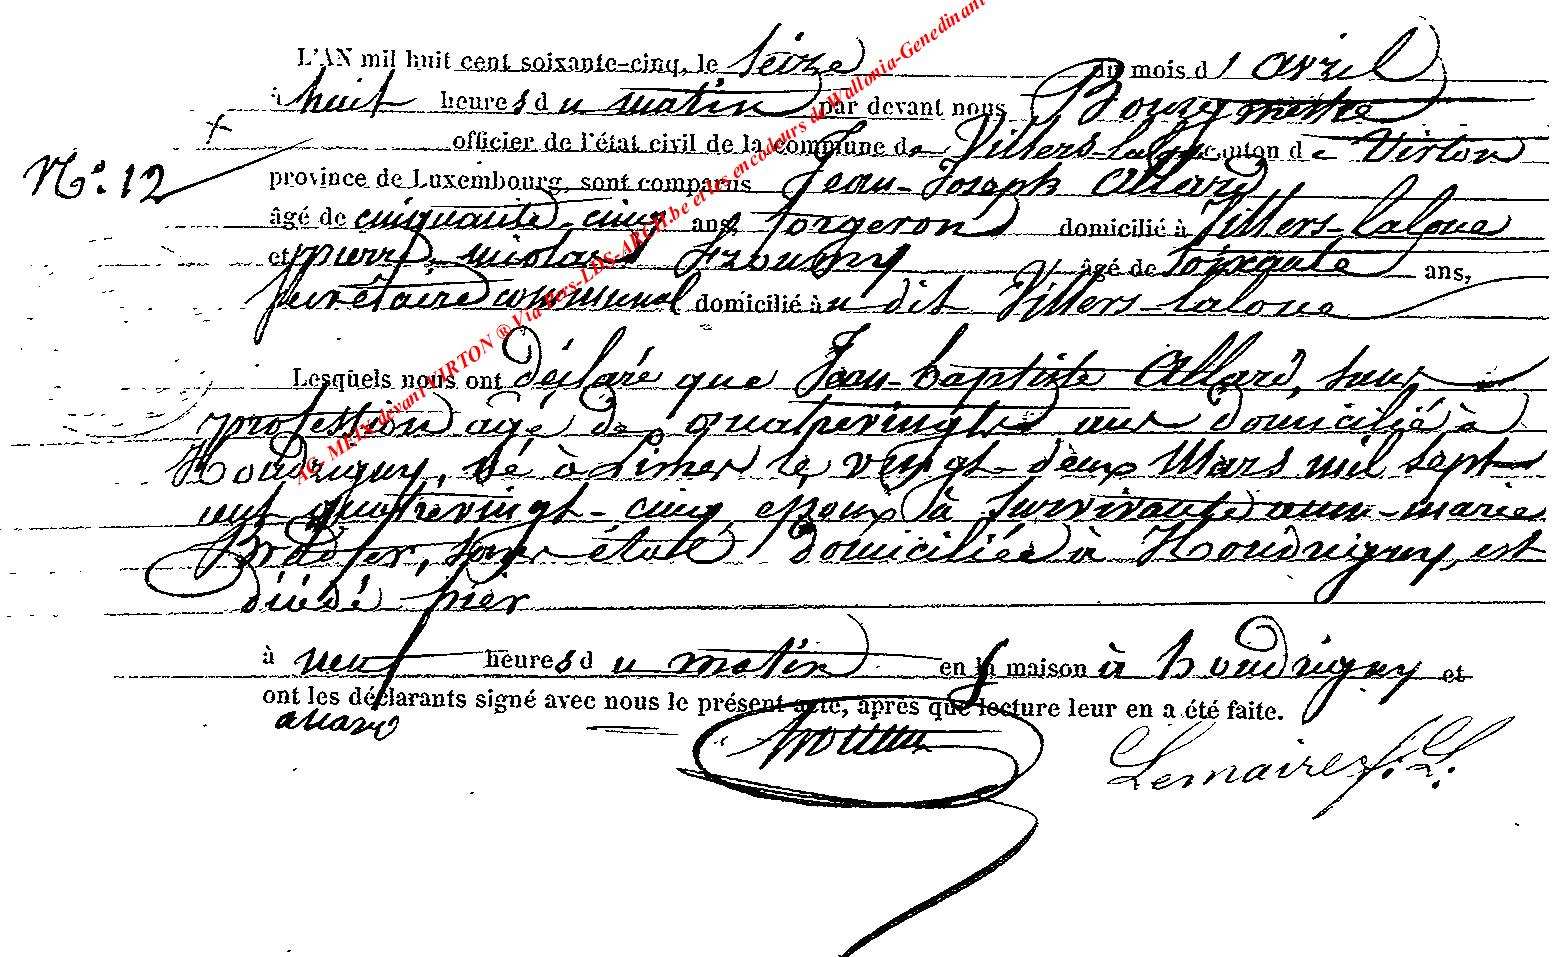 L'AN mil huit cent soixante-cinq, le seize du mois d'avril
à huit heures du matin par devant nous Bourgmestre
officier de l'état civil de la commune de Villers-laloue canton de Virton
N°. 12
province de Luxembourg, sont comparus Jean-Joseph Allard
âgé de cinquante-cinq ans, forgeron domicilié à Villers-laloue
et pierre-nicolas âgé de soixante ans,
secrétaire communal domicilié à u dit Villers-laloue
Lesquels nous ont déclaré que Jean-baptiste Allard, sans
profession agé de quatrevingts ans domicilié à
Houdrigny, né à Limer le vingt-deux Mars mil sept
cent quatrevingt-cinq, epoux à survivante anne-marie
sans état domiciliée à Houdrigny, est
décédé hier
à neuf heures du matin en sa maison à houdrigny et
ont les déclarants signé avec nous le présent acte, après que lecture leur en a été faite.
allard
Lemaire f. L.
AC METX devant VIRTON ® Via Fers-LDS-ARCH.be et les encodeurs de Wallonia-Genedinant